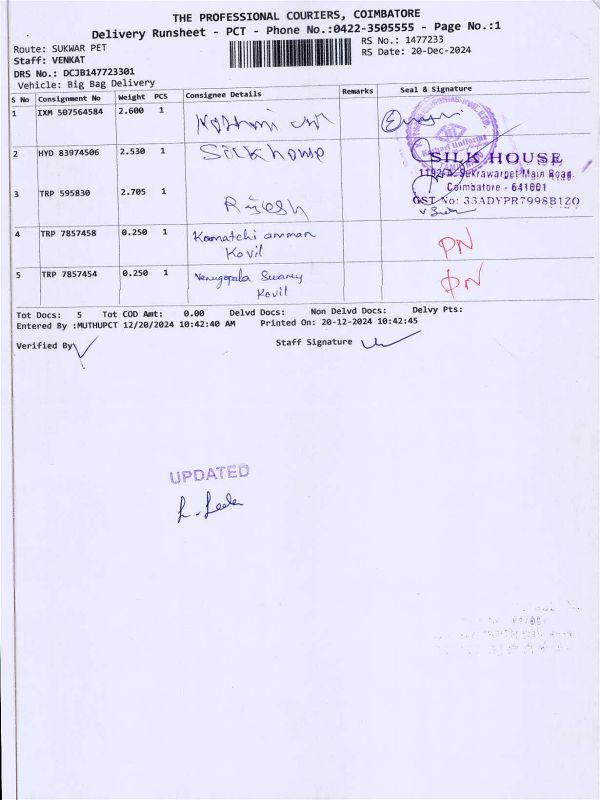 THE PROFESSIONAL COURIERS, COIMBATORE
Delivery Runsheet - PCT - Phone No.:0422-3505555 - Page No.:1
Route: SUKWAR PET
RS No.: 1477233
Staff: VENKAT
RS Date: 20-Dec-2024
DRS No.: DCJB147723301
Vehicle: Big Bag Delivery
S No Consignment No Weight PCS Consignee Details Remarks Seal & Signature
1 IXM 507564584 2.600 1
2 HYD 83974506 2.530 1 Silk house
SILK HOUSE
Sukrawarpet Main Road,
Coimbatore - 641001
GST No: 33ADYPR7998B1ZO
3 TRP 595830 2.705 1 Rajesh
4 TRP 7857458 0.250 1 Kamatchi amman
Kovil
PN
5 TRP 7857454 0.250 1 Venugopala Swamy
Kovil
PN
Tot Docs: 5 Tot COD Amt: 0.00 Delvd Docs: Non Delvd Docs: Delvy Pts:
Entered By :MUTHUPCT 12/20/2024 10:42:40 AM Printed On: 20-12-2024 10:42:45
Verified By
Staff Signature
UPDATED